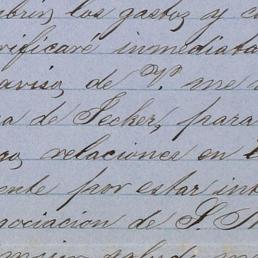 brir los gastos y c
rificaré inmediata
aviso de V. me
a de Jecker, para
relaciones en
ente por estar int
gociacion de S. M